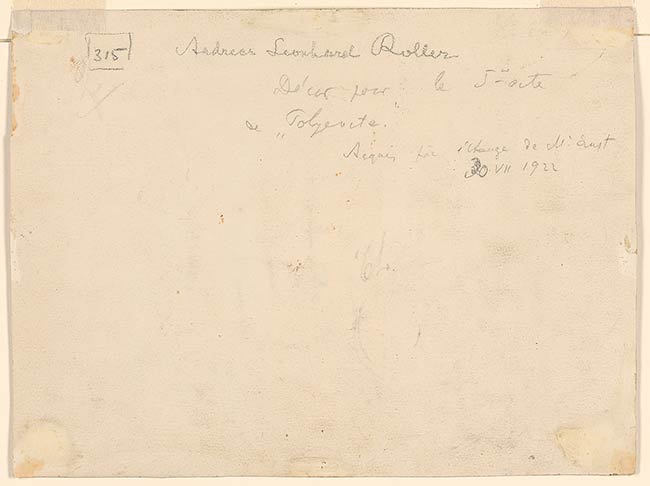 315
Andreas Leonhard Roller
Décor pour le 5me acte
de „Polyeucte."
Acquis par échange de Mr. Ernst
30 VII 1922